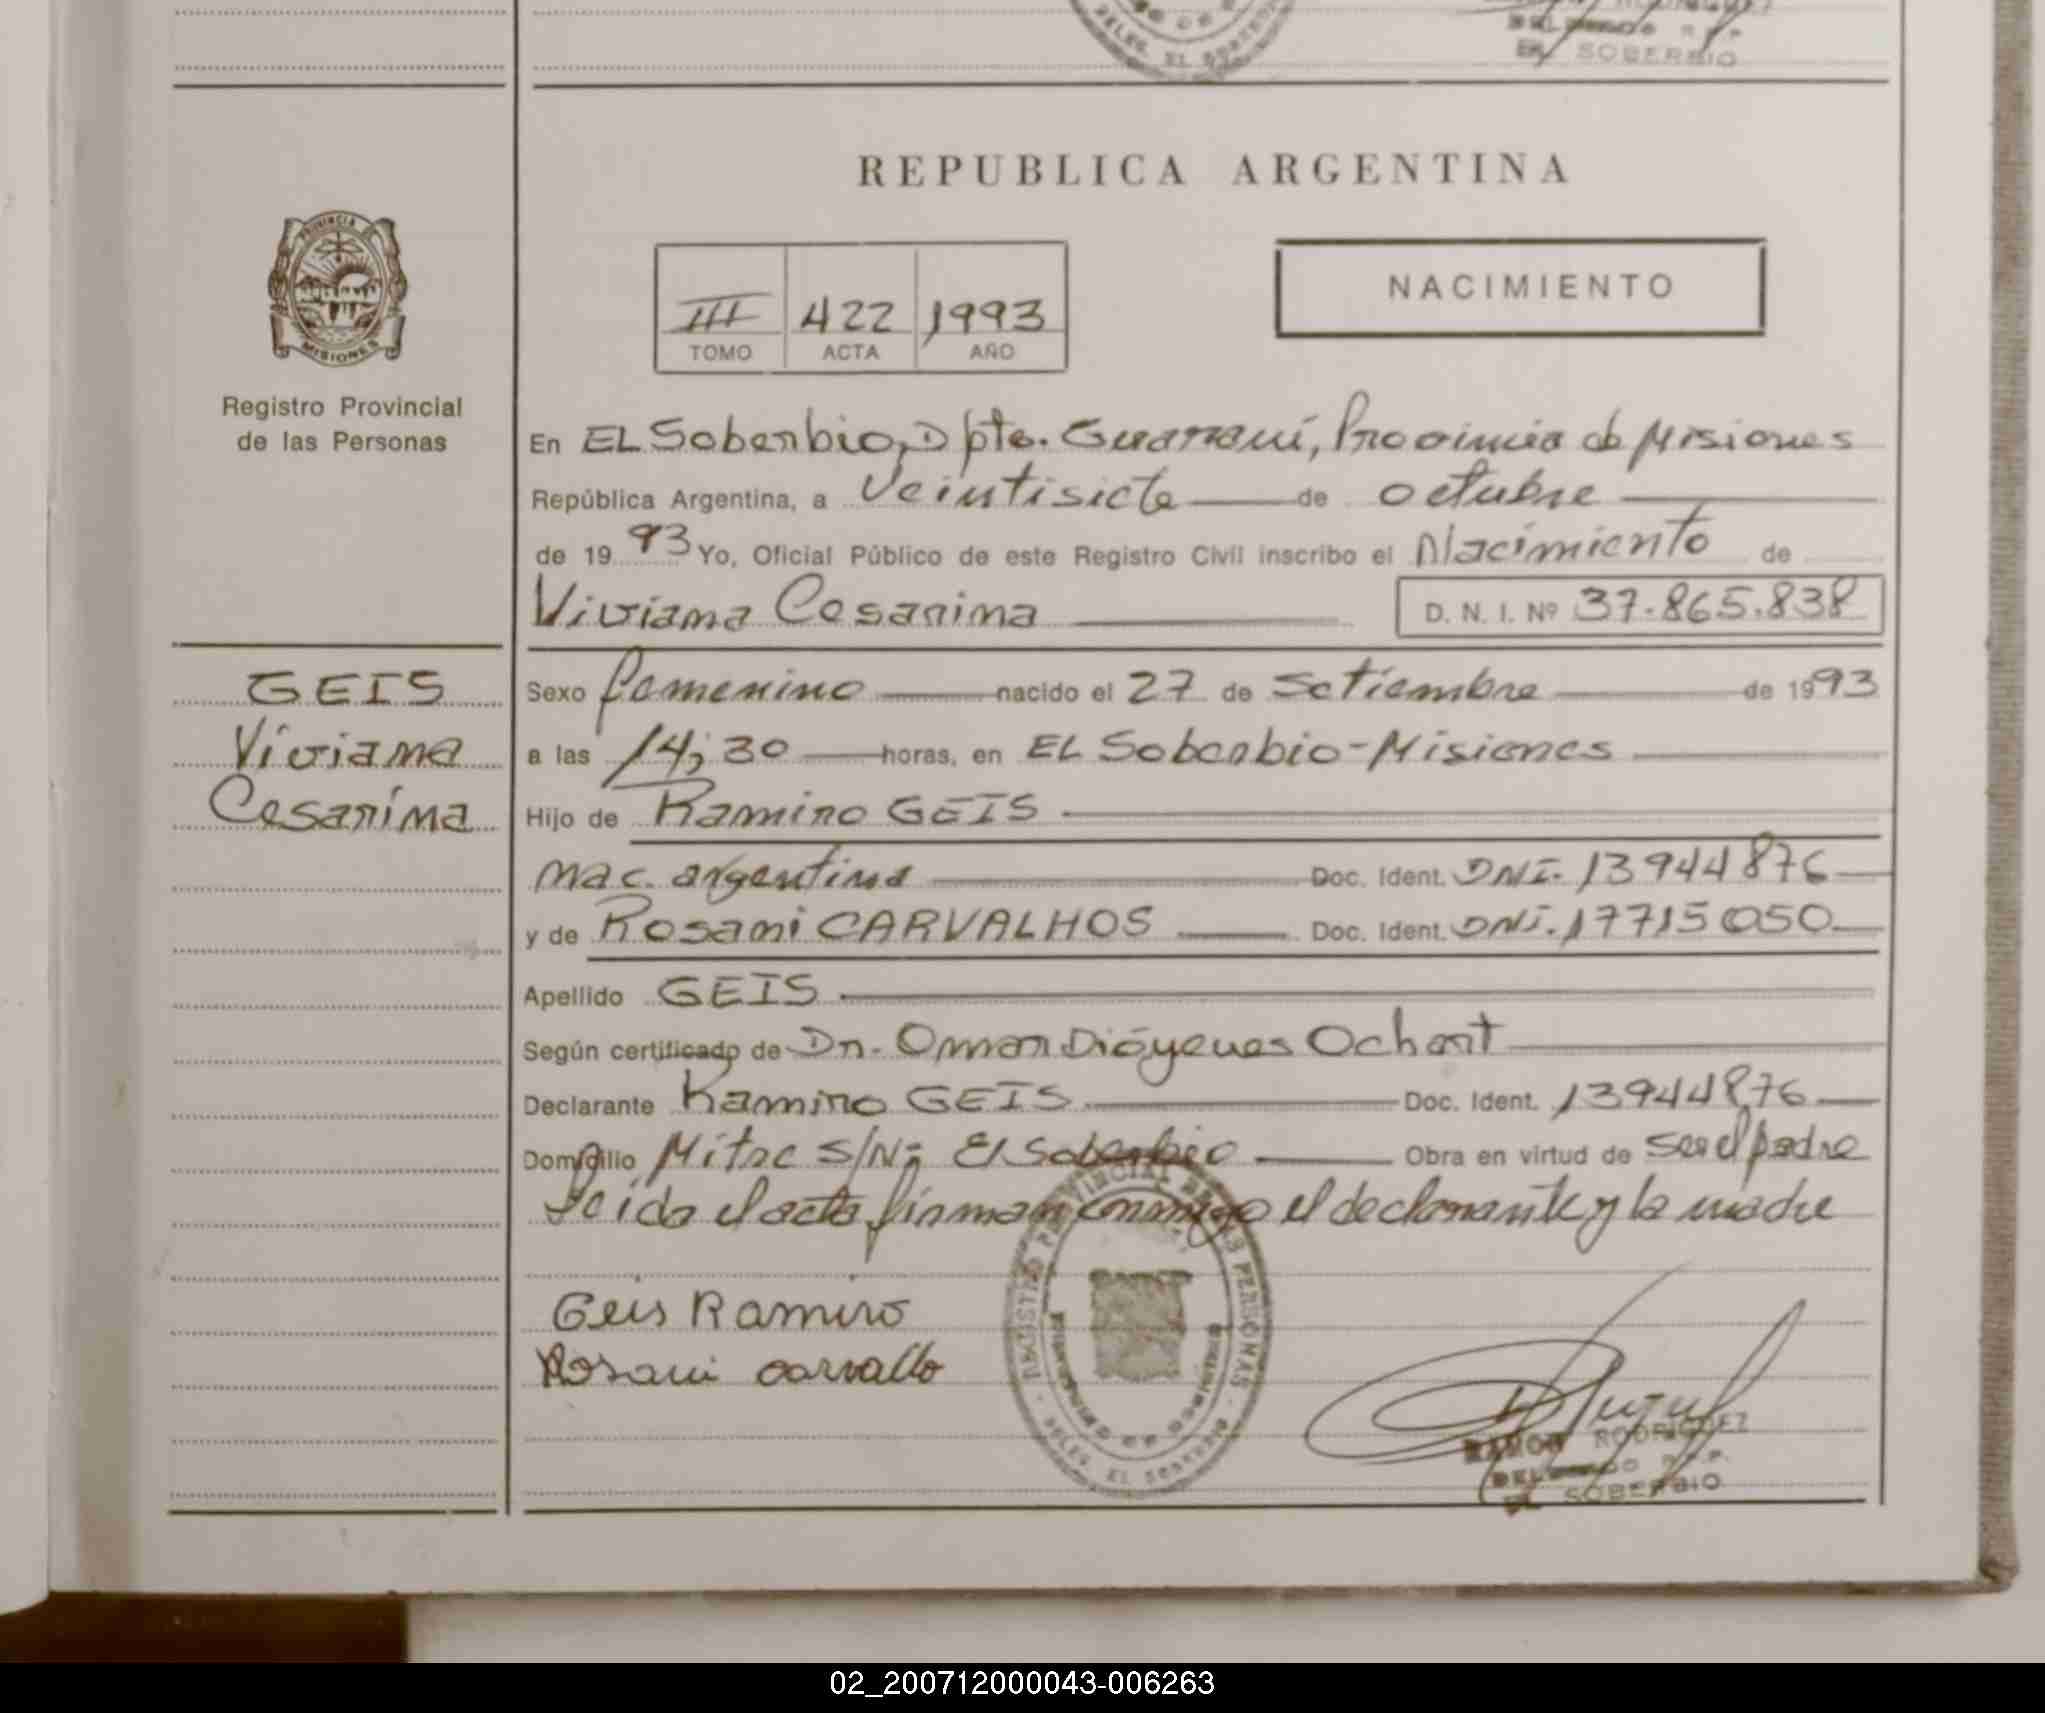 EL SOBERBIO
REPUBLICA ARGENTINA
PROVINCIA DE
MISIONES
Registro Provincial
de las Personas
III 422 1993
TOMO ACTA AÑO
NACIMIENTO
En EL Soberbio, Dpto. Guaraní, Provincia de Misiones
República Argentina, a Veintisiete de octubre
de 1993 Yo, Oficial Público de este Registro Civil inscribo el Nacimiento de
Viviana Cesarina D. N. I. Nº 37.865.838
GEIS
Viviana
Cesarina
Sexo femenino nacido el 27 de Setiembre de 1993
a las 14,30 horas, en EL Soberbio-Misiones
Hijo de Ramiro GEIS
nac. argentina Doc. Ident. DNI. 13944876
y de Rosani CARVALHOS Doc. Ident. DNI. 17715050
Apellido GEIS
Según certificado de Dr. Omar Diógenes Ochart
Declarante Ramiro GEIS Doc. Ident. 13944876
Domicilio Mitre S/N; El Soberbio Obra en virtud de ser el padre
Leida el acta firman conmigo el declarante y la madre
Geis Ramiro
Rosani carvallo
REGISTRO PROVINCIAL DE LAS PERSONAS
DELEG. EL SOBERBIO
RAMON RODRIGUEZ
DELEGADO R.P.P.
EL SOBERBIO
02_200712000043-006263